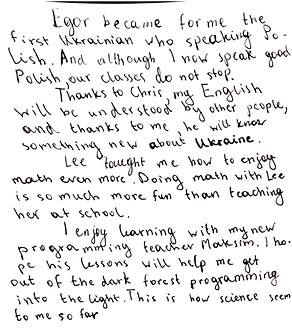 Egor became for me the
first Ukrainian who speaking Po-
lish. And although I now speak good
Polish, our classes do not stop.
Thanks to Chris, my English
will be understood by other people,
and thanks to me, he will know
something new about Ukraine.
Lee taught me how to enjoy
math even more. Doing math with Lee
is so much more fun than teaching
her at school.
I enjoy learning with my new
programming teacher Maksim. I ho-
pe his lessons will help me get
out of the dark forest programming
into the light. This is how science seem
to me so far